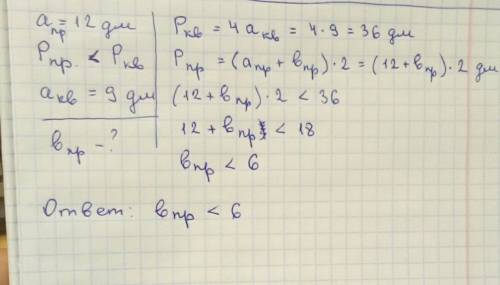 aпр = 12 дм
Pпр. < Pкв
aкв = 9 дм
bпр - ?
Pкв = 4 aкв = 4 · 9 = 36 дм
Pпр = (aпр + bпр) · 2 = (12 + bпр) · 2 дм
(12 + bпр) · 2 < 36
12 + bпр < 18
bпр < 6
Ответ: bпр < 6